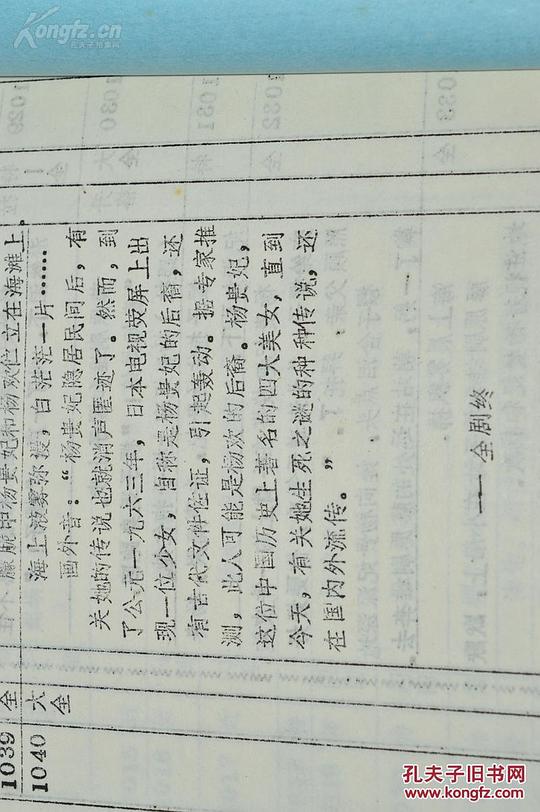 Kongfz.cn
孔夫子旧书网
1039 全 朦胧中杨贵妃和杨欢伫立在海滩上.
1040 全 海上 雾弥漫,白茫茫一片……
画外音:“杨贵妃隐居民间后,有
关她的传说也就消声匿迹了。然而,到
了公元一九六三年,日本电视荧屏上出
现一位少女,自称是杨贵妃的后裔,还
有古代文件佐证,引起轰动。据专家推
测,此人可能是杨欢的后裔。杨贵妃,
这位中国历史上著名的四大美女,直到
今天,有关她生死之谜的种种传说,还
在国内外流传。”
——全剧终
孔夫子旧书网
www.kongfz.com